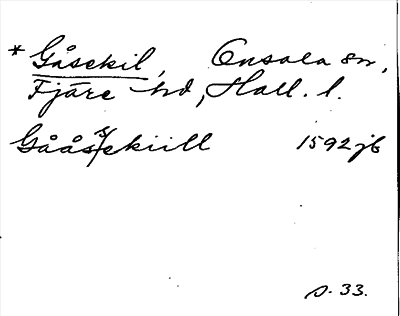 * Gåsekil, Onsala sn,
Fjäre hd, Hall. l.
Gåås/ekiill 1592 jb
s. 33.